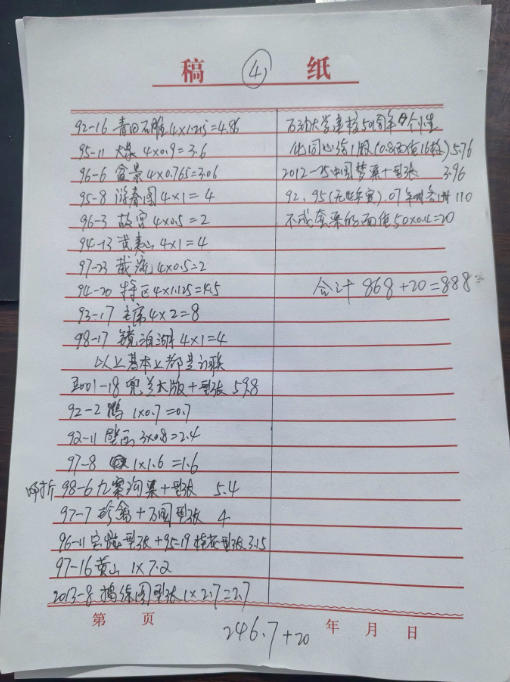 稿 ④ 纸
92-16 青田石雕 4×1.215=4.86
95-11 大桑 4×0.9=3.6
96-6 盆景 4×0.765=3.06
95-8 游春图 4×1=4
96-3 故宫 4×0.5=2
94-13 武夷山 4×1=4
97-23 截流 4×0.5=2
94-20 特区 4×1.125=4.5
93-17 主席 4×2=8
98-17 镜泊湖 4×1=4
以上基本上都是订联
2001-18 兜兰大版+型张 59.8
92-2 鹳 1×0.7=0.7
92-11 壁画 3×0.8=2.4
97-8 1×1.6=1.6
98-6 九寨沟票+型张 5.4
97-7 珍禽+万国型张 4
96-11 型张+95-19 桂花型张 3.15
97-16 黄山 1×7.2
2013-8 捣练图型张 1×2.7=2.7
第 页
246.7+20
大学建校50周年 个性
化同心结1版(0.8面值16枚) 5.76
2012-25 中国梦票+型张 3.96
92、95 07年 110
不成套票的面值 50×0.4=20
合计 868+20=888
年 月 日